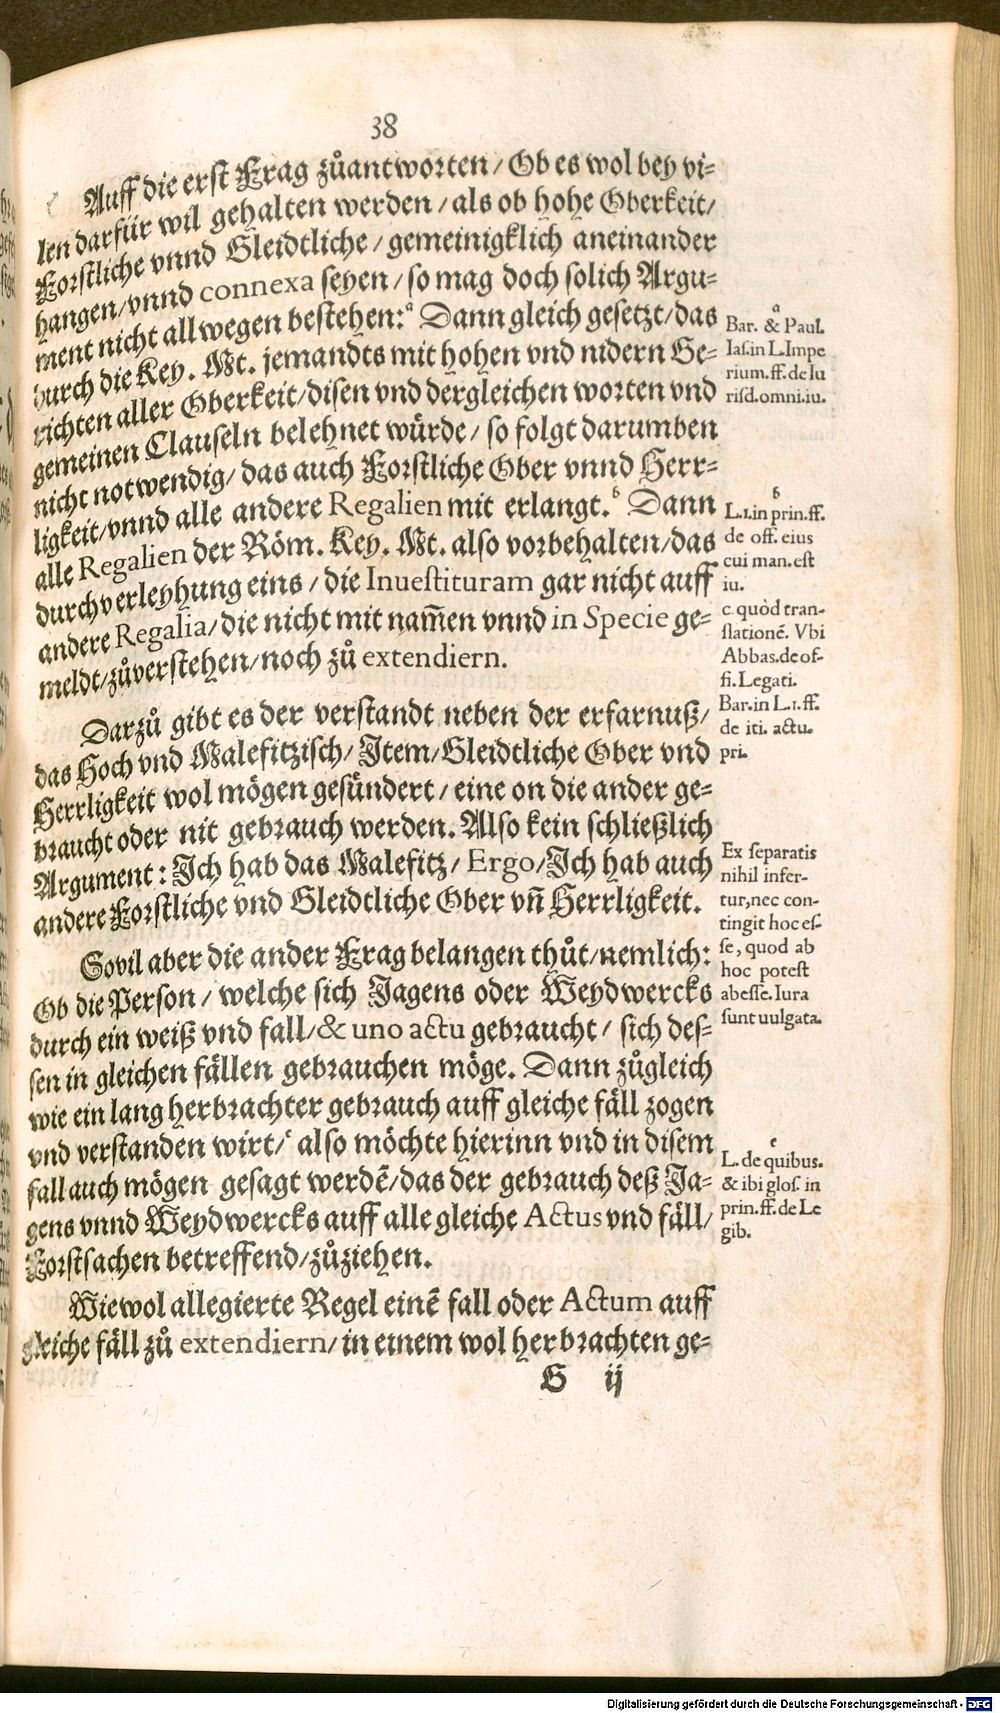 38
Auff die erst Frag zůantworten/ Ob es wol bey vi⸗
len darfür wil gehalten werden/ als ob hohe Oberkeit/
Forstliche vnnd Gleidtliche/ gemeinigklich aneinander
hangen/ vnnd connexa seyen/ so mag doch solich Argu⸗
ment nicht allwegen bestehen:ᵃ Dann gleich gesetzt/ das
durch die Key. Mt. jemandts mit hohen vnd nidern Ge⸗
richten aller Oberkeit/ disen vnd dergleichen worten vnd
gemeinen Clauseln belehnet würde/ so folgt darumben
nicht notwendig/ das auch Forstliche Ober vnnd Herr⸗
ligkeit/ vnnd alle andere Regalien mit erlangt.ᵇ Dann
alle Regalien der Röm. Key. Mt. also vorbehalten/ das
durch verleyhung eins/ die Inuestituram gar nicht auff
andere Regalia/ die nicht mit nam̃en vnnd in Specie ge⸗
meldt/ zůverstehen/ noch zů extendiern.
Darzů gibt es der verstandt neben der erfarnuß/
das Hoch vnd Malefitzisch/ Item/ Gleidtliche Ober vnd
Herrligkeit wol mögen gesündert/ eine on die ander ge⸗
braucht oder nit gebrauch werden. Also kein schließlich
Argument: Ich hab das Malefitz/ Ergo/ Ich hab auch
andere Forstliche vnd Gleidtliche Ober vñ Herrligkeit.
Sovil aber die ander Frag belangen thůt/ nemlich:
Ob die Person/ welche sich Jagens oder Weydwercks
durch ein weiß vnd fall/ & uno actu gebraucht/ sich des⸗
sen in gleichen fällen gebrauchen möge. Dann zůgleich
wie ein lang herbrachter gebrauch auff gleiche fäll zogen
vnd verstanden wirt/ᶜ also möchte hierinn vnd in disem
fall auch mögen gesagt werdẽ/ das der gebrauch deß Ja⸗
gens vnnd Weydwercks auff alle gleiche Actus vnd fäll/
Forstsachen betreffend/ zůziehen.
Wiewol allegierte Regel einẽ fall oder Actum auff
gleiche fäll zů extendiern/ in einem wol herbrachten ge⸗
G ij
a
Bar. & Paul.
Ias. in L. Impe
rium. ff. de Iu
risd. omni. iu.
b
L. 1. in prin. ff.
de off. eius
cui man. est
iu.
c. quòd tran-
slationẽ. Vbi
Abbas. de of-
fi. Legati.
Bar. in L. 1. ff.
de iti. actu.
pri.
Ex separatis
nihil infer-
tur, nec con-
tingit hoc es-
se, quod ab
hoc potest
abesse. Iura
sunt uulgata.
c
L. de quibus.
& ibi glos. in
prin. ff. de Le
gib.
Digitalisierung gefördert durch die Deutsche Forschungsgemeinschaft - DFG